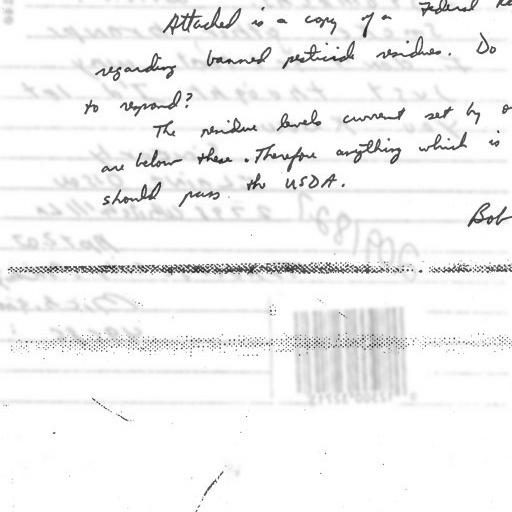 Attached is a copy of a Federal
regarding banned pesticide residues. Do
to respond?
The residue levels current set by
are below these. Therefore anything which is
should pass the USDA.
Bob